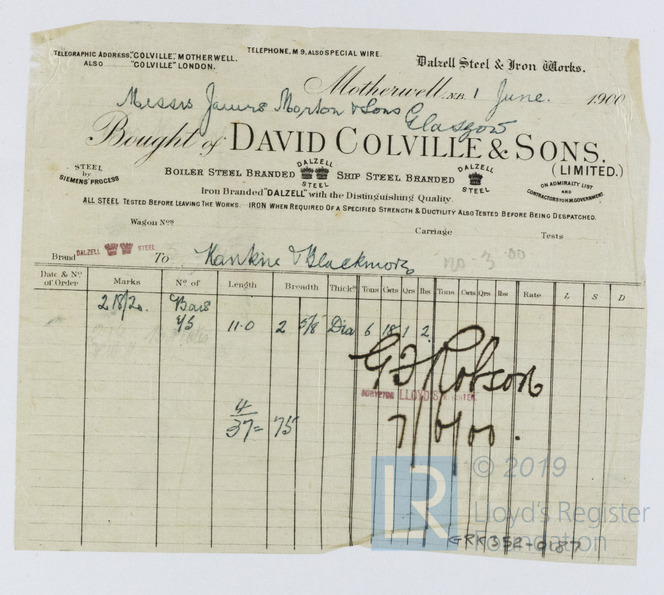 TELEGRAPHIC ADDRESS, "COLVILLE", MOTHERWELL.
ALSO "COLVILLE" LONDON.
TELEPHONE, M 9, ALSO SPECIAL WIRE.
Dalzell Steel & Iron Works.
Motherwell, N.B. 1 June. 1900
Messrs James Morton & Sons
Glasgow
Bought of DAVID COLVILLE & SONS.
(LIMITED.)
STEEL
by
SIEMENS' PROCESS
BOILER STEEL BRANDED DALZELL STEEL SHIP STEEL BRANDED DALZELL STEEL
ON ADMIRALTY LIST
AND
CONTRACTORS FOR H.M. GOVERNMENT.
Iron Branded "DALZELL" with the Distinguishing Quality.
ALL STEEL TESTED BEFORE LEAVING THE WORKS. IRON WHEN REQUIRED OF A SPECIFIED STRENGTH & DUCTILITY ALSO TESTED BEFORE BEING DESPATCHED.
Wagon Nos Carriage Tests
Brand DALZELL STEEL To Rankine & Blackmore
Date & No. of Order Marks No. of Length Breadth Thickss Tons Cwts Qrs lbs Tons Cwts Qrs lbs Rate L S D
218/20. Bars
11.0 2 5/8 Dia 6 18 1 2
G F Robson
SURVEYOR LLOYD'S REGISTER
7/6/00.
4
37 = 75
LR © 2019
Lloyd's Register
Foundation
GRK352-0187